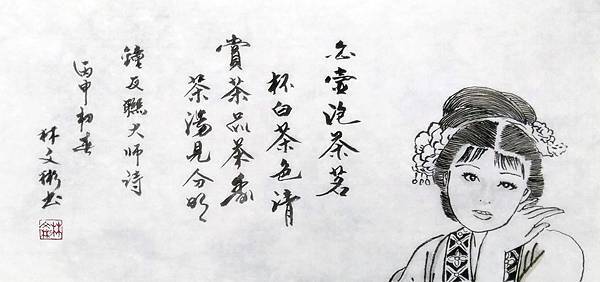 壺泡茶茗
杯白茶色清
賞茶品茶香
茶湯見分明
鐘友聯大師詩
丙申初春
林文彬书